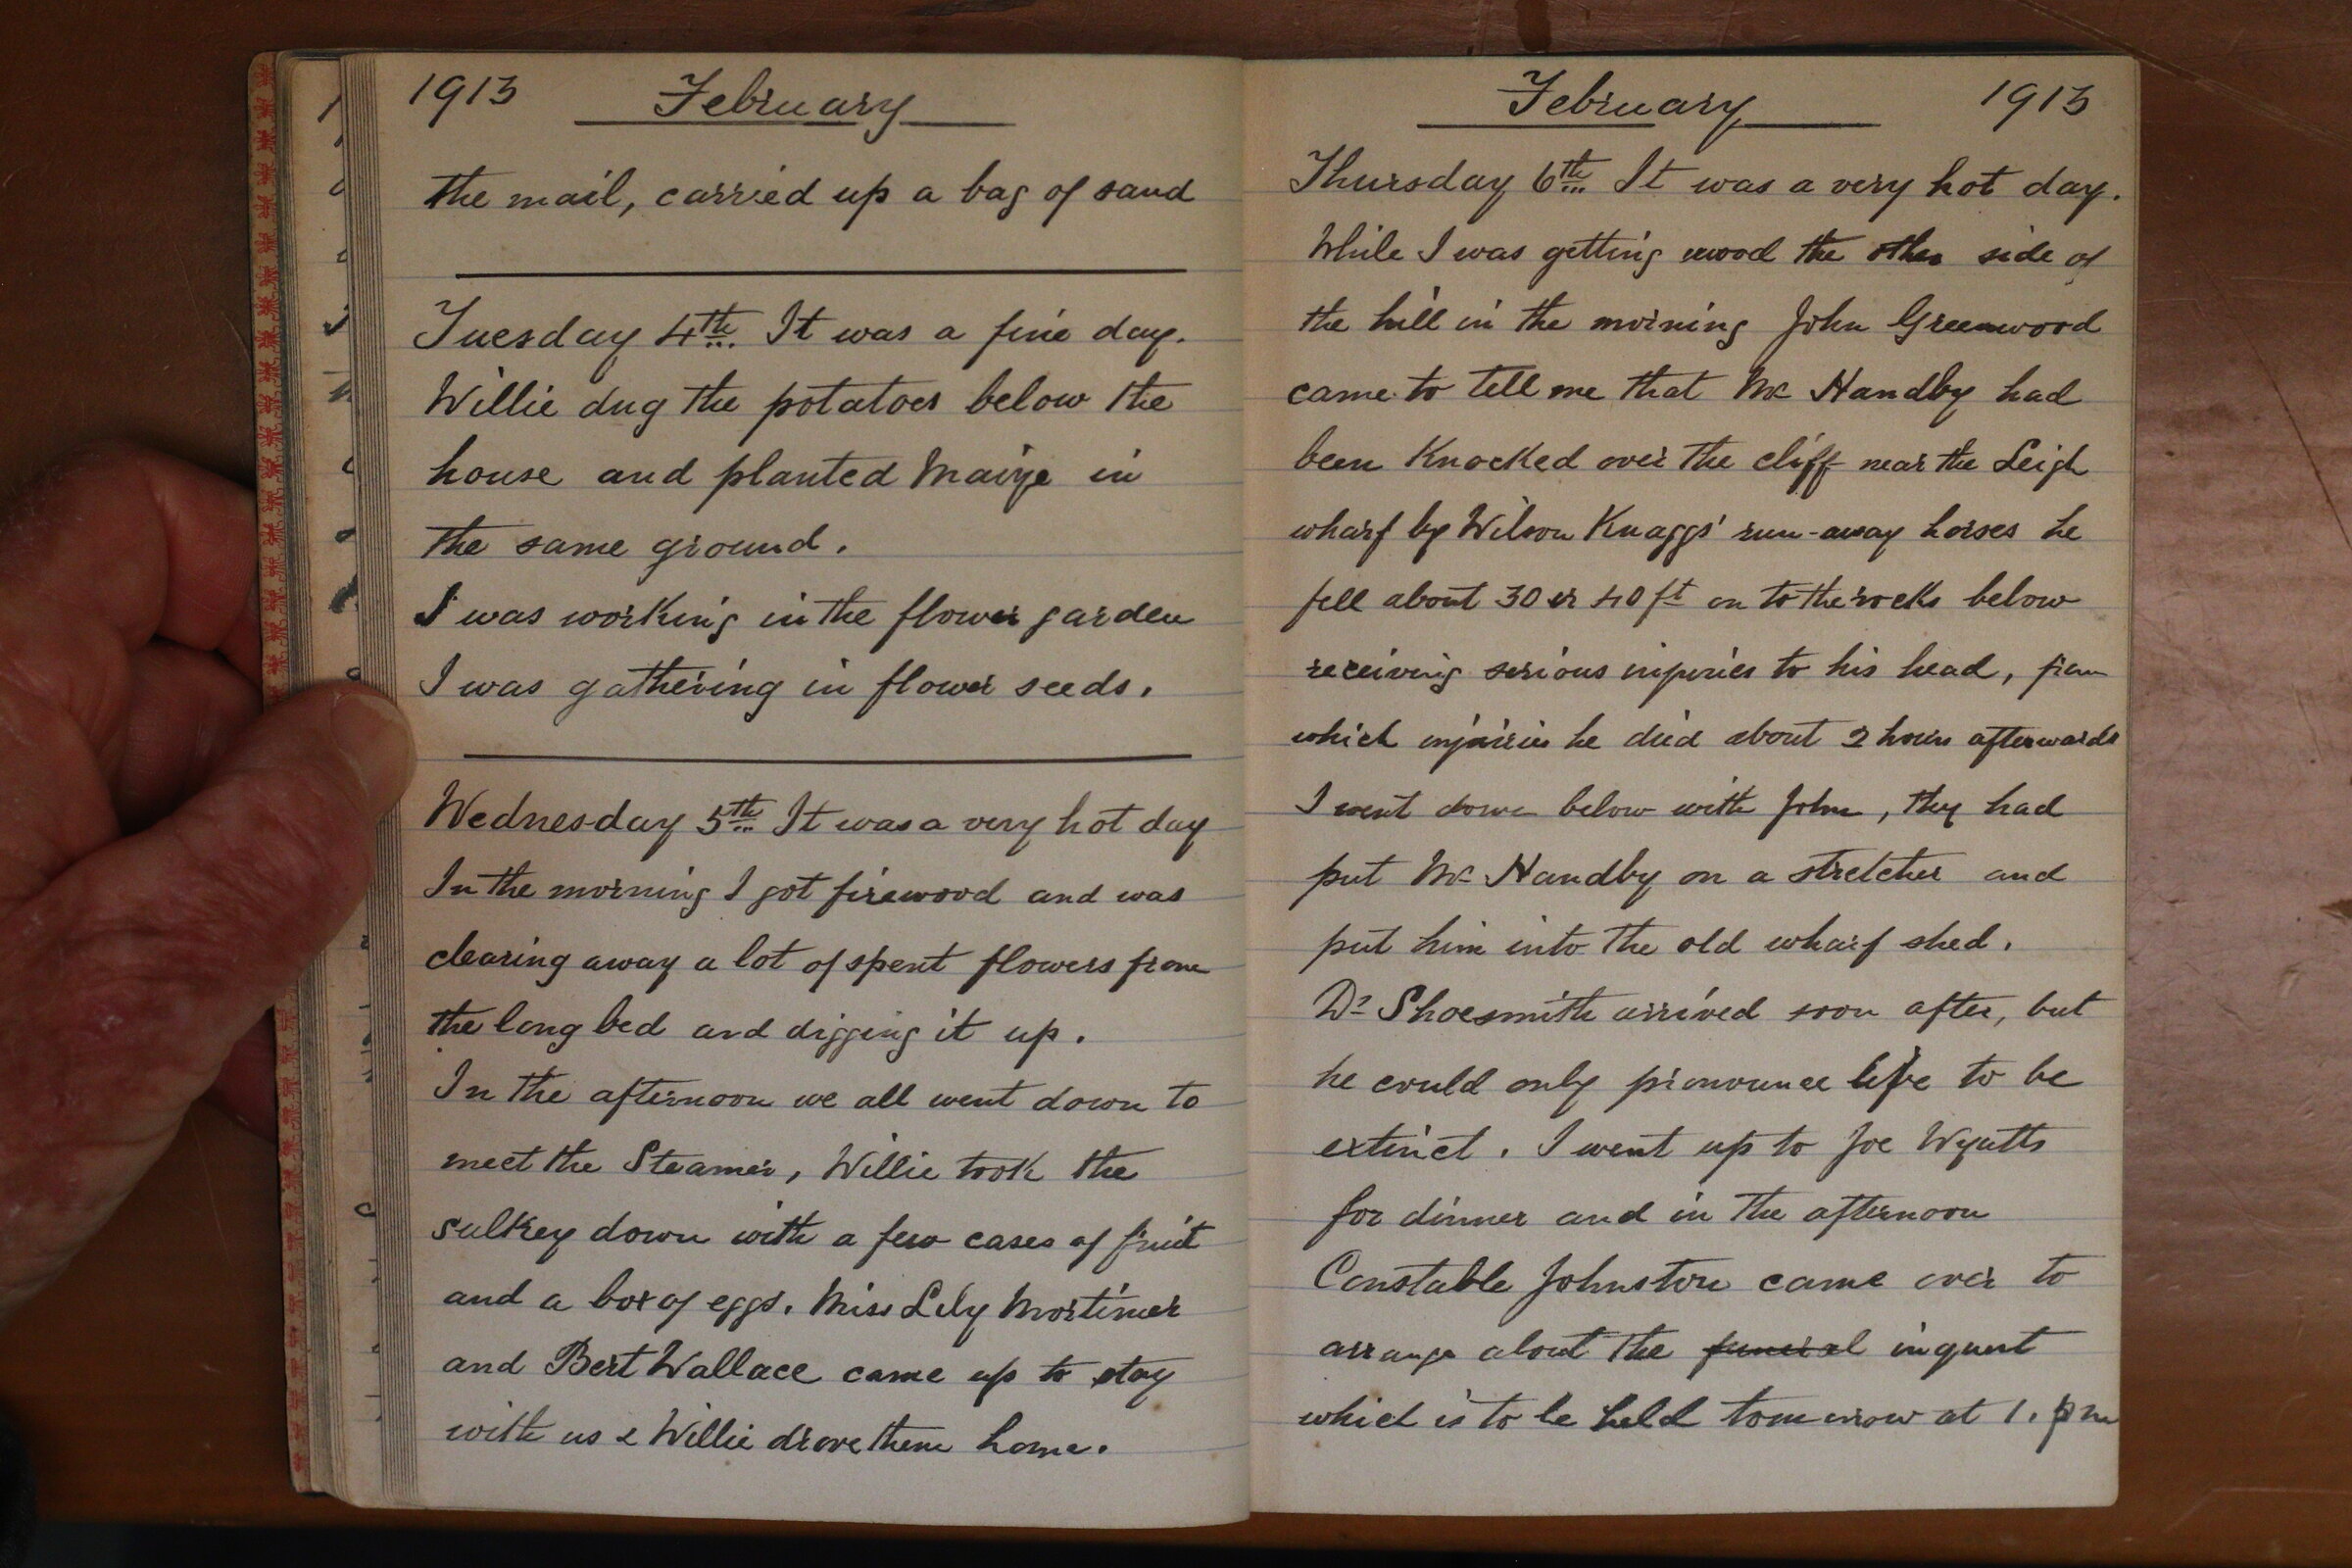 1913 February
the mail, carried up a bag of sand
Tuesday 4th. It was a fine day.
Willie dug the potatoes below the
house and planted Maize in
the same ground.
I was working in the flower garden
I was gathering in flower seeds.
Wednesday 5th It was a very hot day
In the morning I got firewood and was
clearing away a lot of spent flowers from
the long bed and digging it up.
In the afternoon we all went down to
meet the Steamer, Willie took the
sulkey down with a few cases of fruit
and a box of eggs. Miss Lily Mortimer
and Bert Wallace came up to stay
with us & Willie drove them home.
February 1913
Thursday 6th It was a very hot day.
While I was getting wood the other side of
the hill in the morning John Greenwood
came to tell me that Mr Handby had
been Knocked over the cliff near the Leigh
wharf by Wilson Knaggs' run-away horses he
fell about 30 or 40 ft on to the rocks below
receiving serious injuries to his head, from
which injuries he died about 2 hours afterwards
I went down below with John, they had
put Mr Handby on a stretcher and
put him into the old wharf shed.
Dr Shoesmith arrived soon after, but
he could only pronounce life to be
extinct. I went up to Joe Wyatts
for dinner and in the afternoon
Constable Johnstone came over to
arrange about the funeral inquest
which is to be held tomorrow at 1. pm